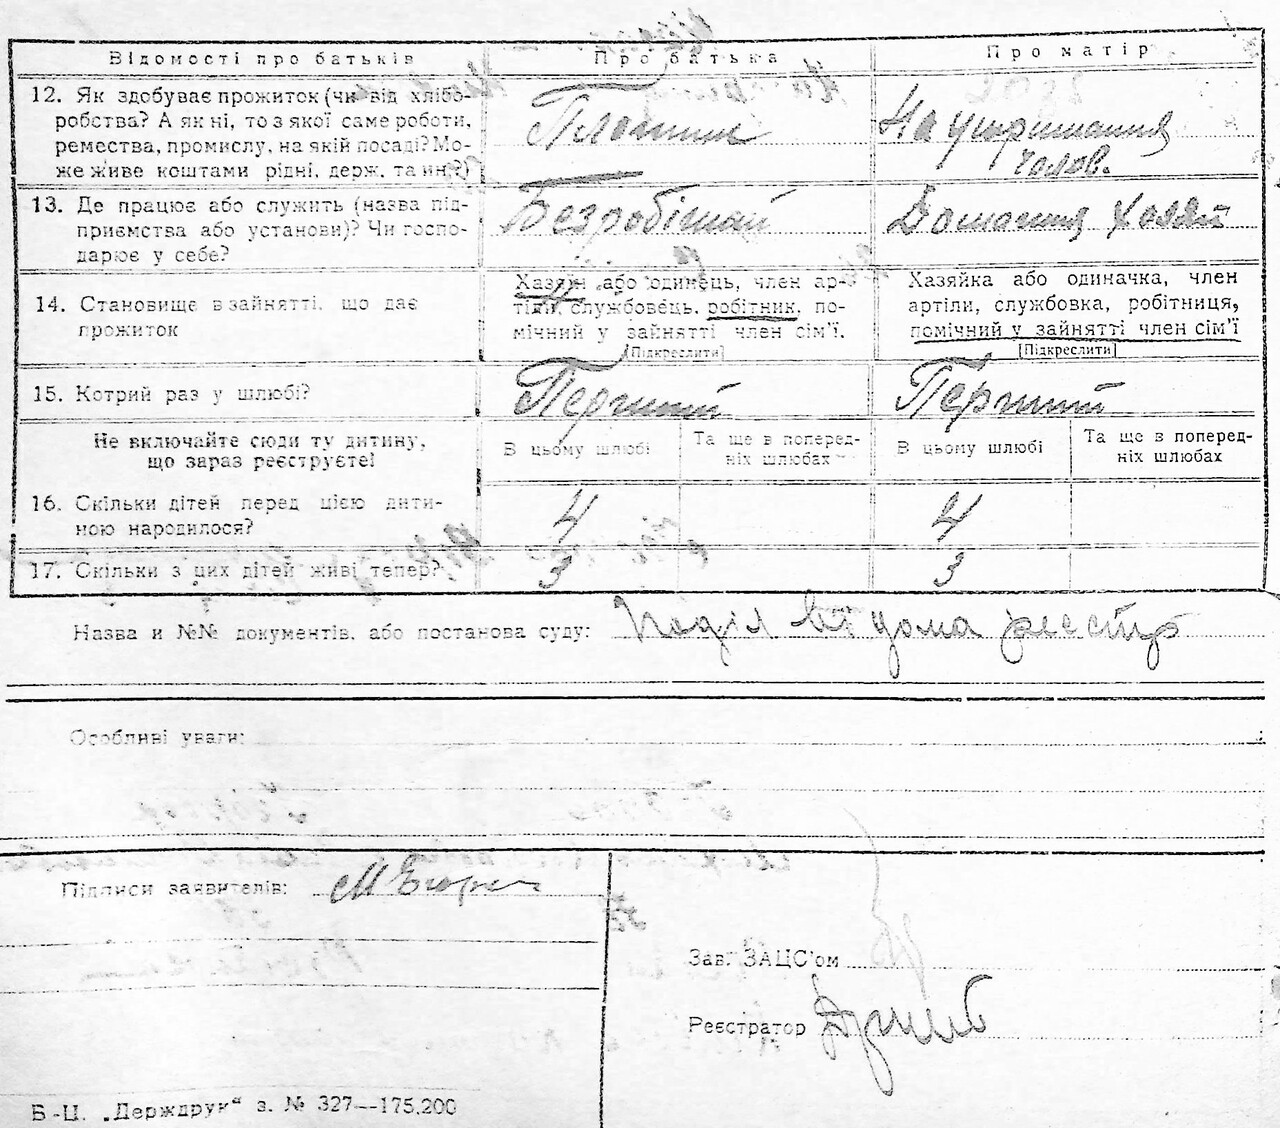 Відомості про батьків
Про батька
Про матір
12. Як здобуває прожиток (чи від хлібо-
робства? А як ні, то з якої саме роботи,
ремества, промислу, на якій посаді? Мо-
же живе коштами рідні, держ. та ин.?)
Плотник
На утримання
чолов.
13. Де працює або служить (назва під-
приємства або установи)? Чи госпо-
дарює у себе?
Безробітний
Домашня хазяй
14. Становище в зайнятті, що дає
прожиток
Хазяїн або одинець, член ар-
тіли, службовець, робітник, по-
мічний у зайнятті член сім'ї.
[Підкреслити]
Хазяйка або одиначка, член
артіли, службовка, робітниця,
помічний у зайнятті член сім'ї
[Підкреслити]
15. Котрий раз у шлюбі?
Перший
Перший
Не включайте сюди ту дитину,
що зараз реєструєте!
В цьому шлюбі
Та ще в поперед-
ніх шлюбах
В цьому шлюбі
Та ще в поперед-
ніх шлюбах
16. Скільки дітей перед цією дити-
ною народилося?
4
4
17. Скільки з цих дітей живі тепер?
3
3
Назва и №№ документів, або постанова суду:
дома реєстр
Особливі уваги:
Підписи заявителів:
Зав. ЗАЦС'ом
Реєстратор
Б-Ц. „Держдрук“ з. № 327—175,200